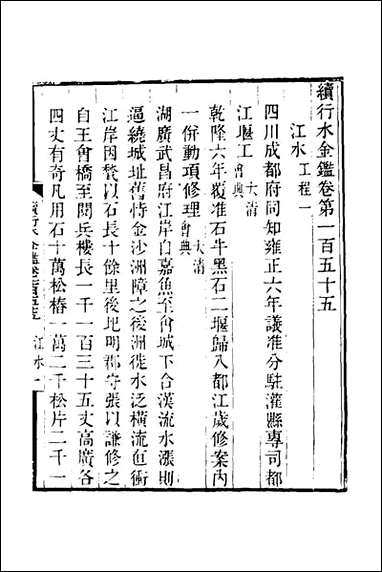 續行水金鑑卷第一百五十五
江水工程一
四川成都府同知雍正六年議准分駐灌縣專司都
江堰工大清會典
乾隆六年覆准石牛黑石二堰歸入都江歲修案內
一併動項修理大清會典
湖廣武昌府江岸自嘉魚至會城下合漢流水漲則
逼繞城址舊恃金沙洲障之後洲徙水泛橫流直衝
江岸因甃以石長十餘里後圯明郡守張以謙修之
自王會橋至閱兵樓長一千一百三十五丈高廣各
四丈有奇凡用石十萬松樁一萬二千松片二千一
江水一